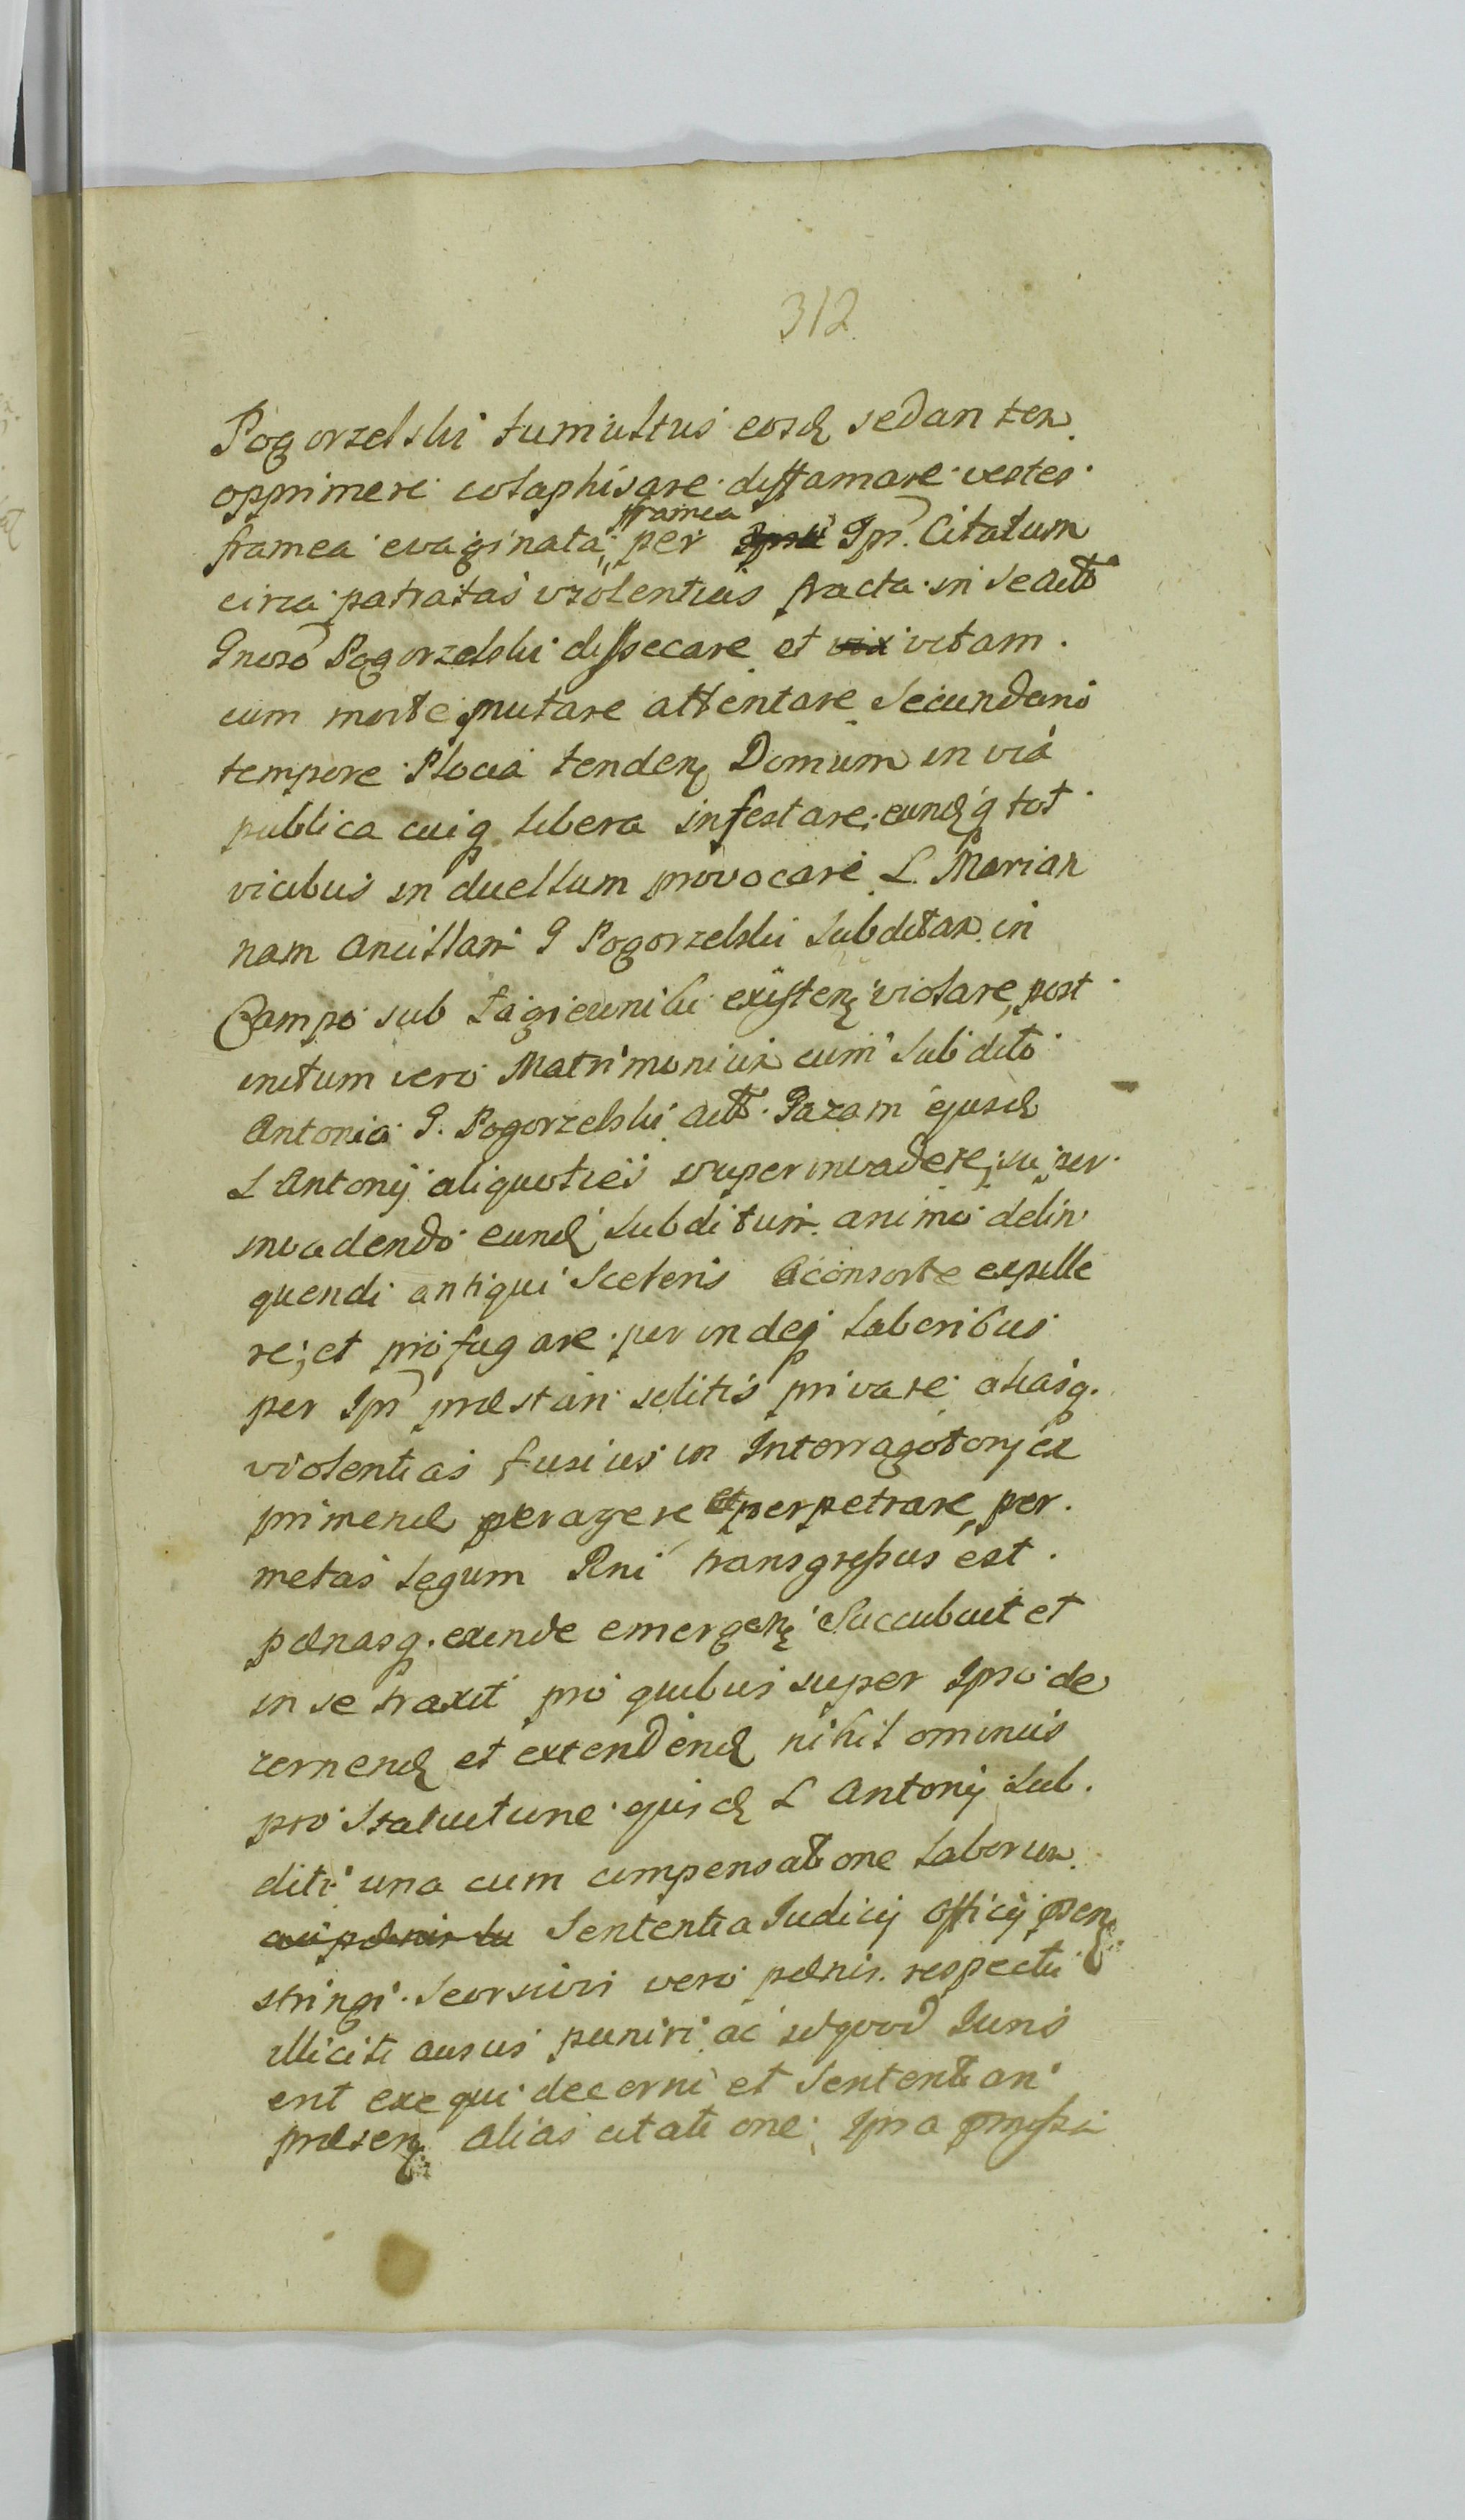 312
Pogorzelski tumultus eosd sedantem
opprimere colaphisare diffamare vestes
framea evaginata, framea per Ipn Citatum
circa patratas violentias fracta in se dtto
Gneroso Pogorzelski dissecare et vitam
cum morte mutare attentare Secundario
tempore Plocia tenden Domum in via
publica cuiq libera infestare, eundq tot
vicibus in duellum provocare L. Marian
nam Ancillam G Pogorzelski Subditam in
Campo sub existen violare, post
initum vero Matrimonium cum Subdito
Antonio G. Pogorzelski dtto. Gazam ejusd
L Antonij aliquoties superinvadere, super
invadendo eund Subditum animo delin
quendi antiqui Sceleris a consorte expelle
re, et profugare per indeq laboribus
per Ipn præstari solitis privare aliasq.
violentias fusius in Interragotorij ex
primend peragere et perpetrare, per
metas Legum Rni transgressus est.
pœnasq. exinde emergen Succubuit et
in se traxit pro quibus super Ipso de
cernend et extendend nihilominus
pro Statuitione ejusd L Antonij Sub
diti una cum compensatione Laborum
Sententia Judicij Officij pren
stringi Seorsivi vero pœnis respectu
illiciti ausus puniri ac id quod Juris
erit exequi decerni et Sententiari
præsen alias citatione Ipsa